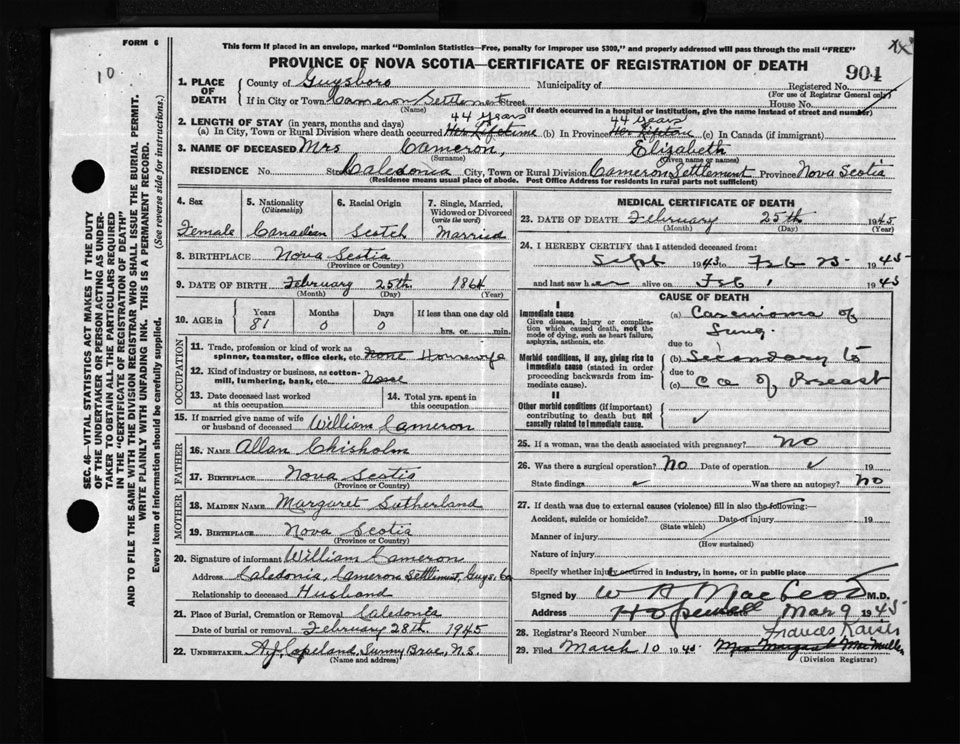 FORM 6
This form if placed in an envelope, marked "Dominion Statistics—Free, penalty for improper use $300," and properly addressed will pass through the mail "FREE"
PROVINCE OF NOVA SCOTIA—CERTIFICATE OF REGISTRATION OF DEATH
10
901
SEC. 46—VITAL STATISTICS ACT MAKES IT THE DUTY
OF THE UNDERTAKER OR PERSON ACTING AS UNDER-
TAKER TO OBTAIN ALL THE PARTICULARS REQUIRED
IN THE "CERTIFICATE OF REGISTRATION OF DEATH"
AND TO FILE THE SAME WITH THE DIVISION REGISTRAR WHO SHALL ISSUE THE BURIAL PERMIT.
WRITE PLAINLY WITH UNFADING INK. THIS IS A PERMANENT RECORD.
Every item of information should be carefully supplied. (See reverse side for instructions.)
1. PLACE OF DEATH
County of Guysboro Municipality of Registered No.
(For use of Registrar General only)
If in City or Town Cameron Settlement Street House No.
(Name) (If death occurred in a hospital or institution, give the name instead of street and number)
44 years 44 years
2. LENGTH OF STAY (in years, months and days)
(a) In City, Town or Rural Division where death occurred Her Lifetime (b) In Province Her Lifetime (c) In Canada (if immigrant)
3. NAME OF DECEASED Mrs Cameron, Elizabeth
(Surname) (Given name or names)
RESIDENCE No. Street Caledonia City, Town or Rural Division Cameron Settlement Province Nova Scotia
(Residence means usual place of abode. Post Office Address for residents in rural parts not sufficient)
4. Sex
Female
5. Nationality
(Citizenship)
Canadian
6. Racial Origin
Scotch
7. Single, Married, Widowed or Divorced
(write the word)
Married
8. BIRTHPLACE Nova Scotia
(Province or Country)
9. DATE OF BIRTH February 25th 1864
(Month) (Day) (Year)
10. AGE in Years Months Days If less than one day old
81 0 0 hrs. or min.
OCCUPATION
11. Trade, profession or kind of work as
spinner, teamster, office clerk, etc. None Housewife
12. Kind of industry or business, as cotton-
mill, lumbering, bank, etc. None
13. Date deceased last worked
at this occupation
14. Total yrs. spent in
this occupation
15. If married give name of wife
or husband of deceased William Cameron
FATHER
16. NAME Allan Chisholm
17. BIRTHPLACE Nova Scotia
(Province or Country)
MOTHER
18. MAIDEN NAME Margaret Sutherland
19. BIRTHPLACE Nova Scotia
(Province or Country)
20. Signature of informant William Cameron
Address Caledonia, Cameron Settlement, Guys. Co
Relationship to deceased Husband
21. Place of Burial, Cremation or Removal Caledonia
Date of burial or removal February 28th 1945
22. UNDERTAKER A.J. Copeland, Sunny Brae, N.S.
(Name and address)
MEDICAL CERTIFICATE OF DEATH
23. DATE OF DEATH February 25th 1945
(Month) (Day) (Year)
24. I HEREBY CERTIFY that I attended deceased from:
Sept 1943 to Feb 25 1945
and last saw her alive on Feb 1 1945
CAUSE OF DEATH
I
Immediate cause
Give disease, injury or complica-
tion which caused death, not the
mode of dying, such as heart failure,
asphyxia, asthenia, etc.
(a) Carcinoma of
Lung.
due to
Morbid conditions, if any, giving rise to
immediate cause (stated in order
proceeding backwards from im-
mediate cause).
(b) Secondary to
due to
(c) Ca of Breast
II
Other morbid conditions (if important)
contributing to death but not
causally related to immediate cause.
25. If a woman, was the death associated with pregnancy? No
26. Was there a surgical operation? No Date of operation 19
State findings Was there an autopsy? No
27. If death was due to external causes (violence) fill in also the following:—
Accident, suicide or homicide? Date of injury 19
(State which)
Manner of injury
(How sustained)
Nature of injury
Specify whether injury occurred in industry, in home, or in public place
Signed by W A MacLeod M.D.
Address Hopewell Mar 9 1945
28. Registrar's Record Number Frances Kaiser
29. Filed March 10 1945
(Division Registrar)